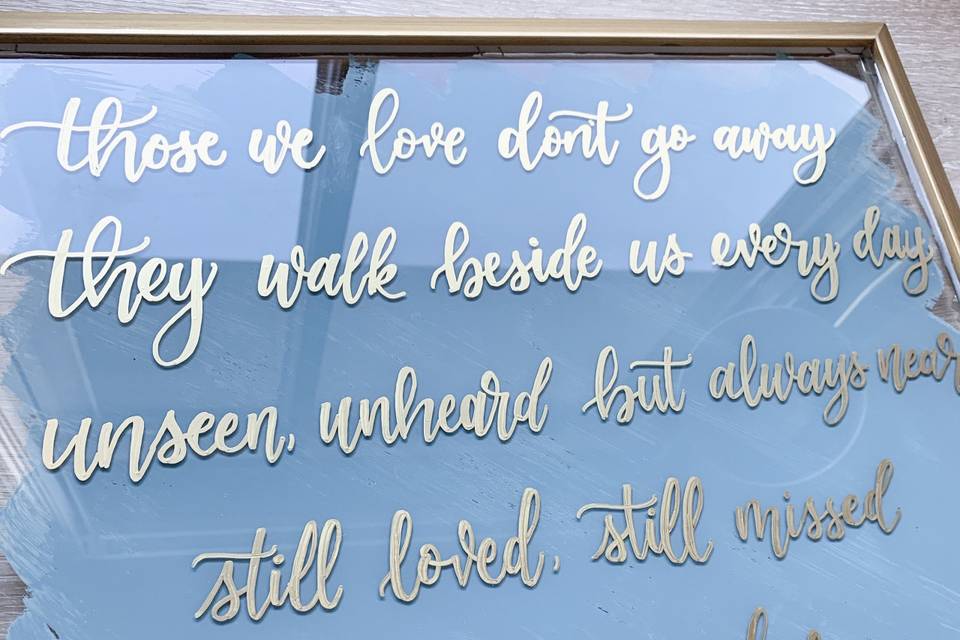 those we love don't go away
they walk beside us every day
unseen, unheard but always near
still loved, still missed